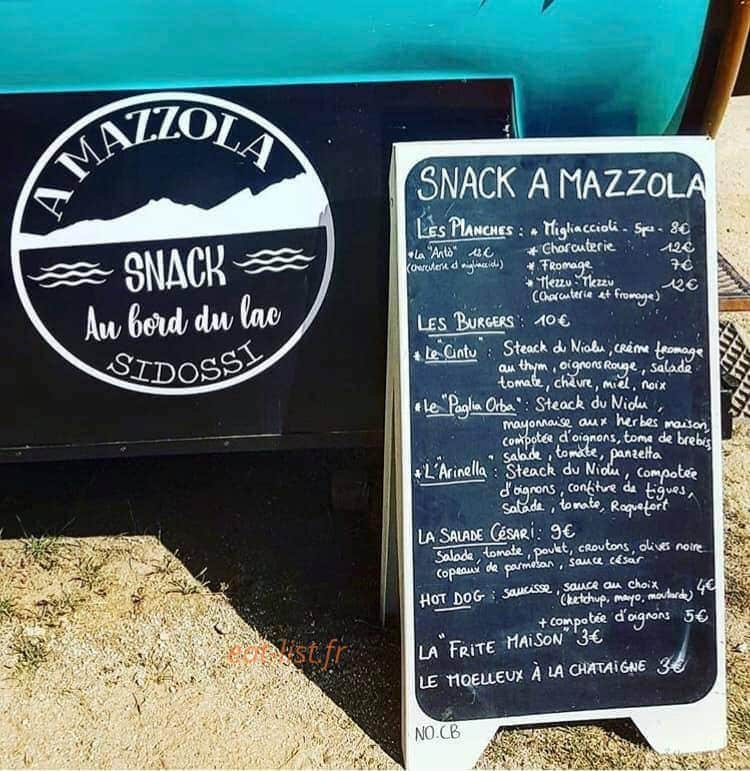 A MAZZOLA
SNACK
Au bord du lac
SIDOSSI
SNACK A MAZZOLA
LES PLANCHES : * Migliaccioli - 5pcs - 8€
* La "Antò" 12€
(charcuterie et migliaccioli)
* Charcuterie 12€
* Fromage 7€
* Mezzu-Mezzu 12€
(Charcuterie et fromage)
LES BURGERS : 10€
* Le "Cintu" : Steack du Niolu, crème fromage
au thym, oignons Rouge, salade
tomate, chèvre, miel, noix
* Le "Paglia Orba" : Steack du Niolu,
mayonnaise aux herbes maison,
compotée d'oignons, tome de brebis,
salade, tomate, panzetta
* L'"Arinella" : Steack du Niolu, compotée
d'oignons, confiture de figues,
salade, tomate, Roquefort
LA SALADE CÉSARI : 9€
Salade tomate, poulet, croutons, olives noire
copeaux de parmesan, sauce césar
HOT DOG : saucisse, sauce au choix 4€
(ketchup, mayo, moutarde)
+ compotée d'oignons 5€
LA "FRITE MAISON" 3€
LE MOELLEUX À LA CHATAIGNE 3€
NO.CB
eat-list.fr